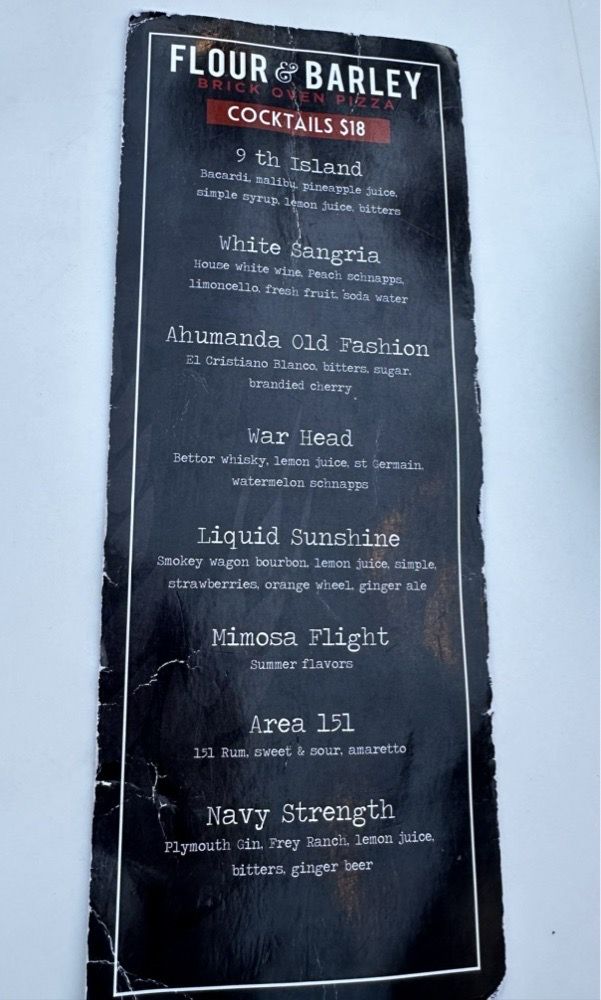 FLOUR & BARLEY
BRICK OVEN PIZZA
COCKTAILS $18
9 th Island
Bacardi, malibu, pineapple juice,
simple syrup, lemon juice, bitters
White Sangria
House white wine, Peach schnapps,
limoncello, fresh fruit, soda water
Ahumanda Old Fashion
El Cristiano Blanco, bitters, sugar,
brandied cherry
War Head
Bettor whisky, lemon juice, st Germain,
watermelon schnapps
Liquid Sunshine
Smokey wagon bourbon, lemon juice, simple,
strawberries, orange wheel, ginger ale
Mimosa Flight
Summer flavors
Area 151
151 Rum, sweet & sour, amaretto
Navy Strength
Plymouth Gin, Frey Ranch, lemon juice,
bitters, ginger beer